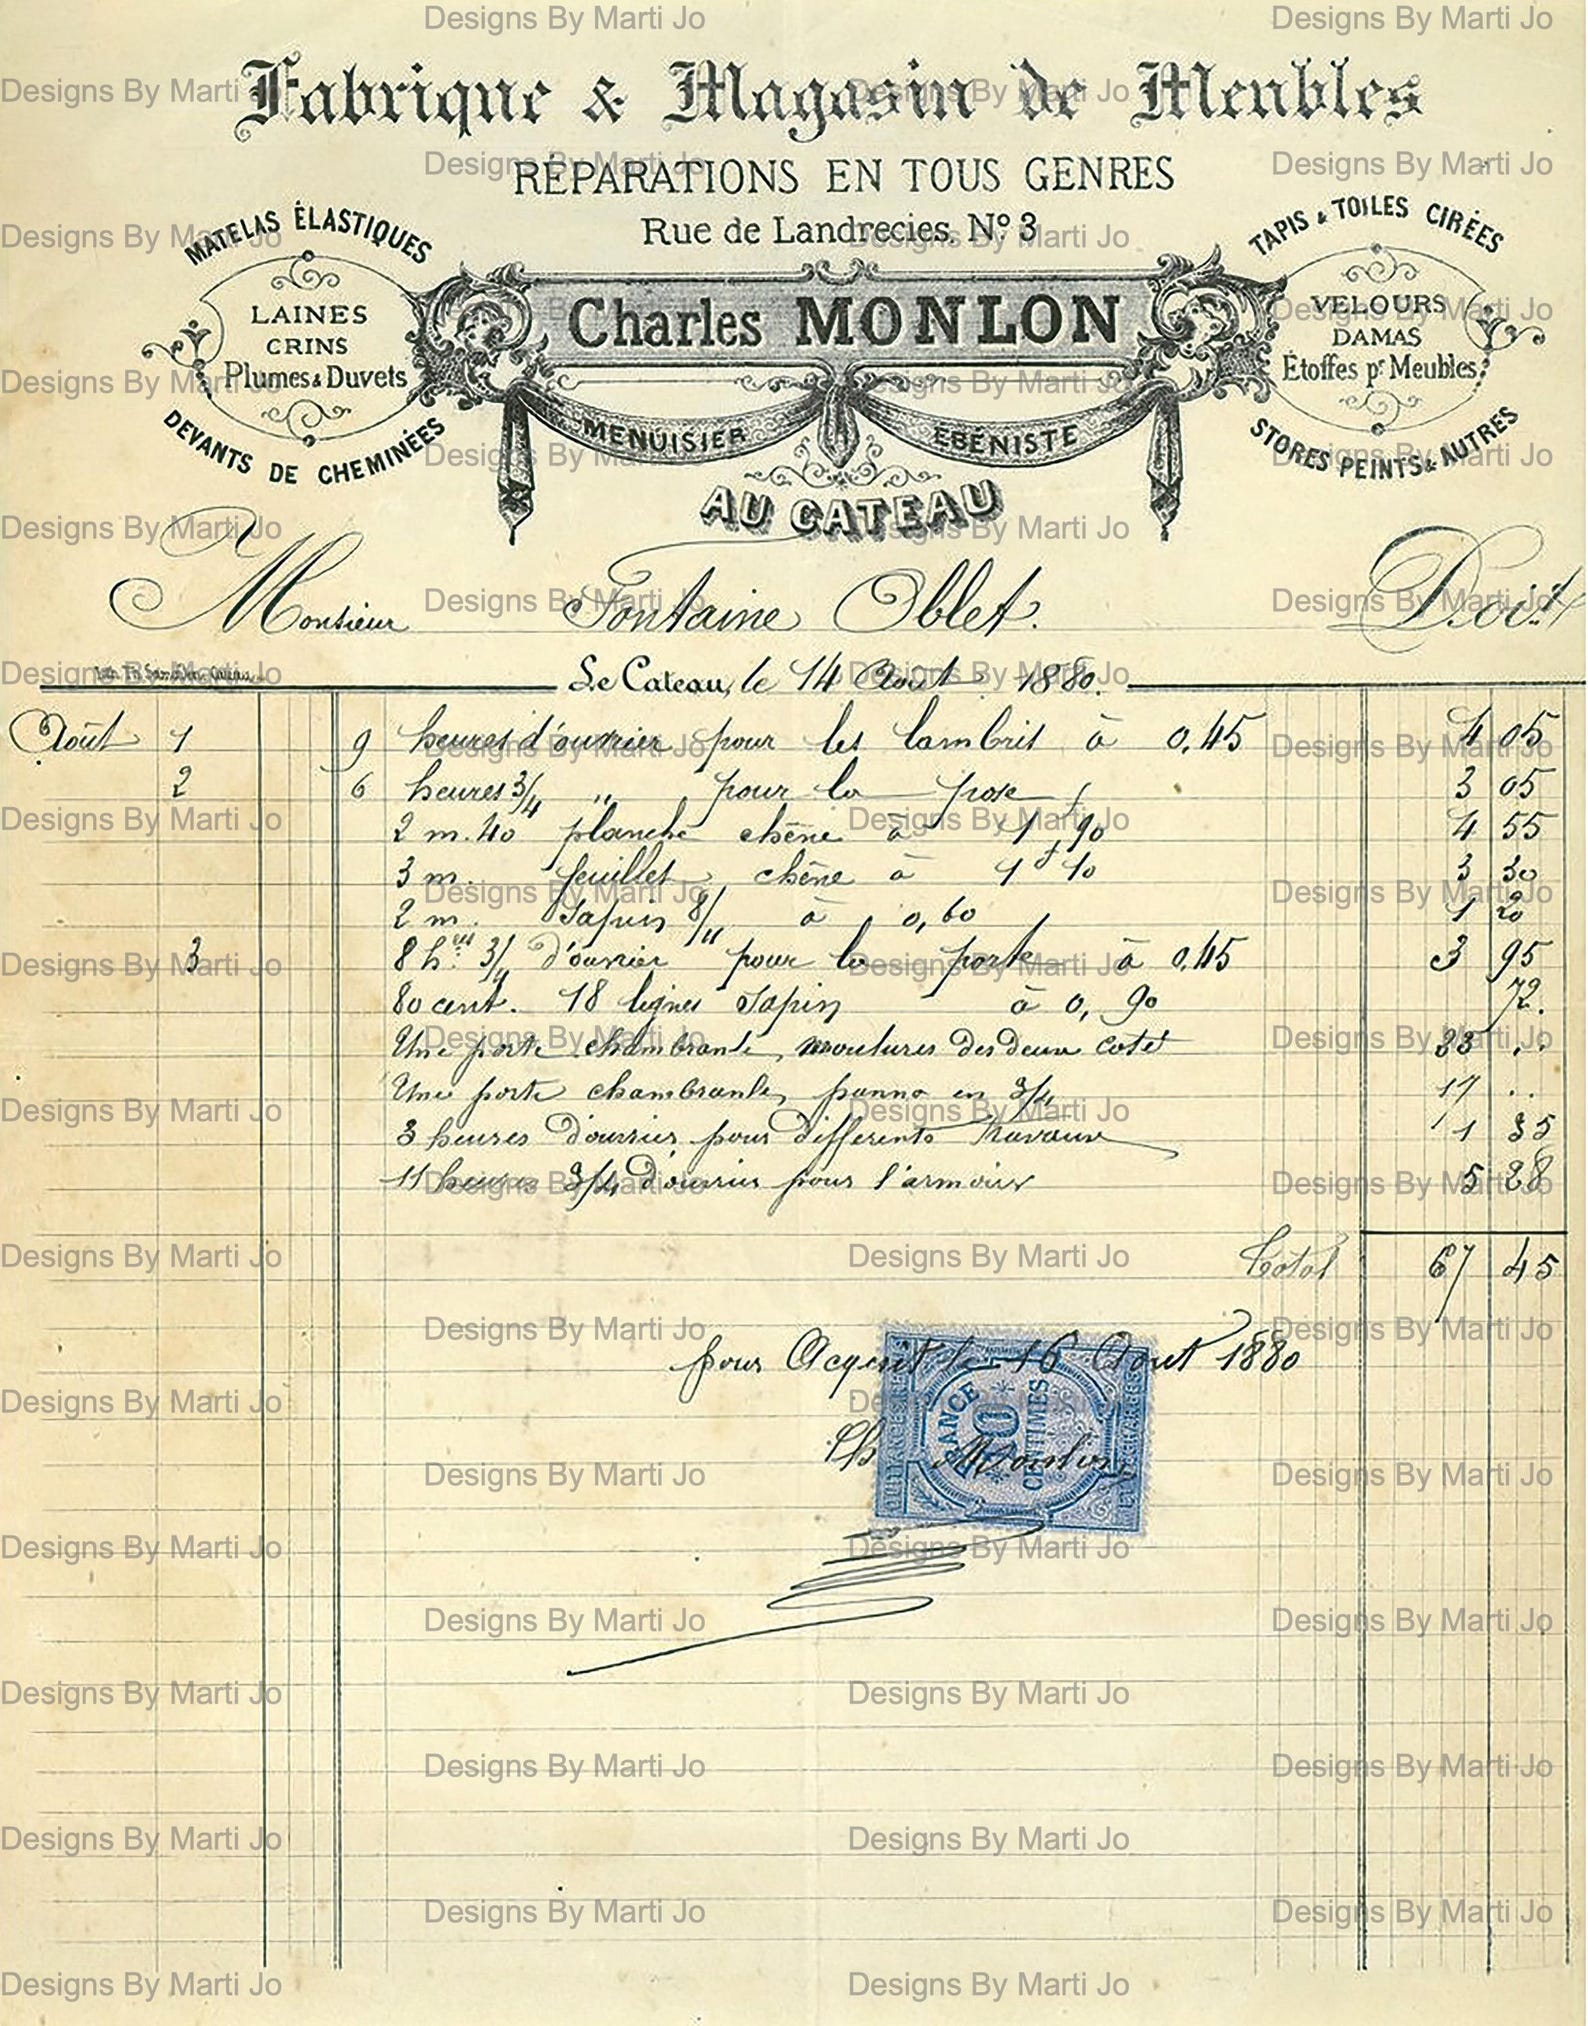 Fabrique & Magasin de Meubles
RÉPARATIONS EN TOUS GENRES
Rue de Landrecies, Nº 3
MATELAS ÉLASTIQUES
LAINES
CRINS
Plumes & Duvets
DEVANTS DE CHEMINÉES
Charles MONLON
MENUISIER ÉBÉNISTE
AU CATEAU
TAPIS & TOILES CIRÉES
VELOURS
DAMAS
Étoffes pr Meubles
STORES PEINTS & AUTRES
Monsieur Fontaine Oblet. Doit
Le Cateau, le 14 Août 1880.
Août 1 9 heures d'ouvrier pour les lambris à 0,45 4 05
2 6 heures 3/4 " pour la pose 3 05
2 m. 40 planche chêne à 1 f 90 4 55
3 m. feuillet chêne à 1 f 10 3 30
2 m. Sapin 8/" à 0,60 1 20
3 8 hres 3/4 d'ouvrier pour la porte à 0,45 3 95
80 cent. 18 lignes Sapin à 0,90 72.
Une porte chambranle, moulures des deux cotés 23 ..
Une porte chambranle, panno en 3/4 17 ..
3 heures d'ouvrier pour differents travaux 1 35
11 heures 3/4 d'ouvrier pour l'armoire 5 28
Total 67 45
pour Acquit le 16 Aout 1880
Ch Monlon
QUITTANCES
FRANCE
10
CENTIMES
Designs By Marti Jo